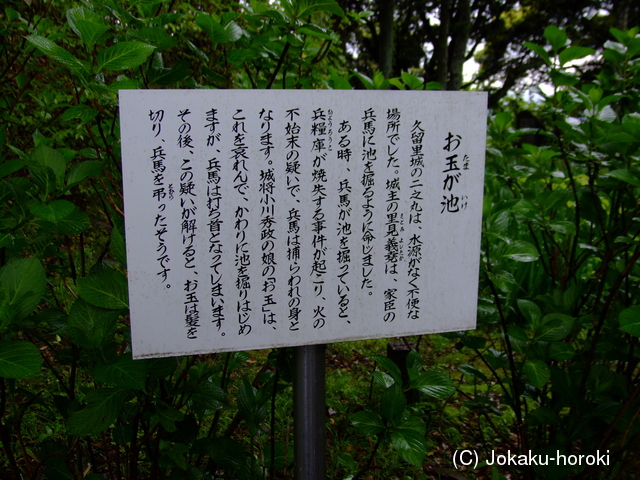 お玉が池
たま
いけ
久留里城の二之丸は、水源がなく不便な
場所でした。城主の里見義堯は、家臣の
さとみ
よしたか
兵馬に池を掘るように命じました。
ある時、兵馬が池を掘っていると、
兵糧庫が焼失する事件が起こり、火の
ひょうろうこ
不始末の疑いで、兵馬は捕らわれの身と
なります。城将小川秀政の娘の「お玉」は、
これを哀れんで、かわりに池を掘りはじめ
ますが、兵馬は打ち首となってしまいます。
その後、この疑いが解けると、お玉は髪を
切り、兵馬を弔ったそうです。
とむら
(C) Jokaku-horoki